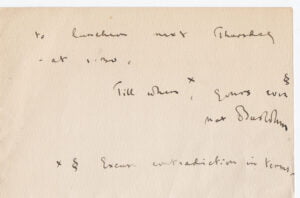 to luncheon next Thursday
- at 1.30.
Till when x, yours ever §
not
x § Excuse contradiction in terms.